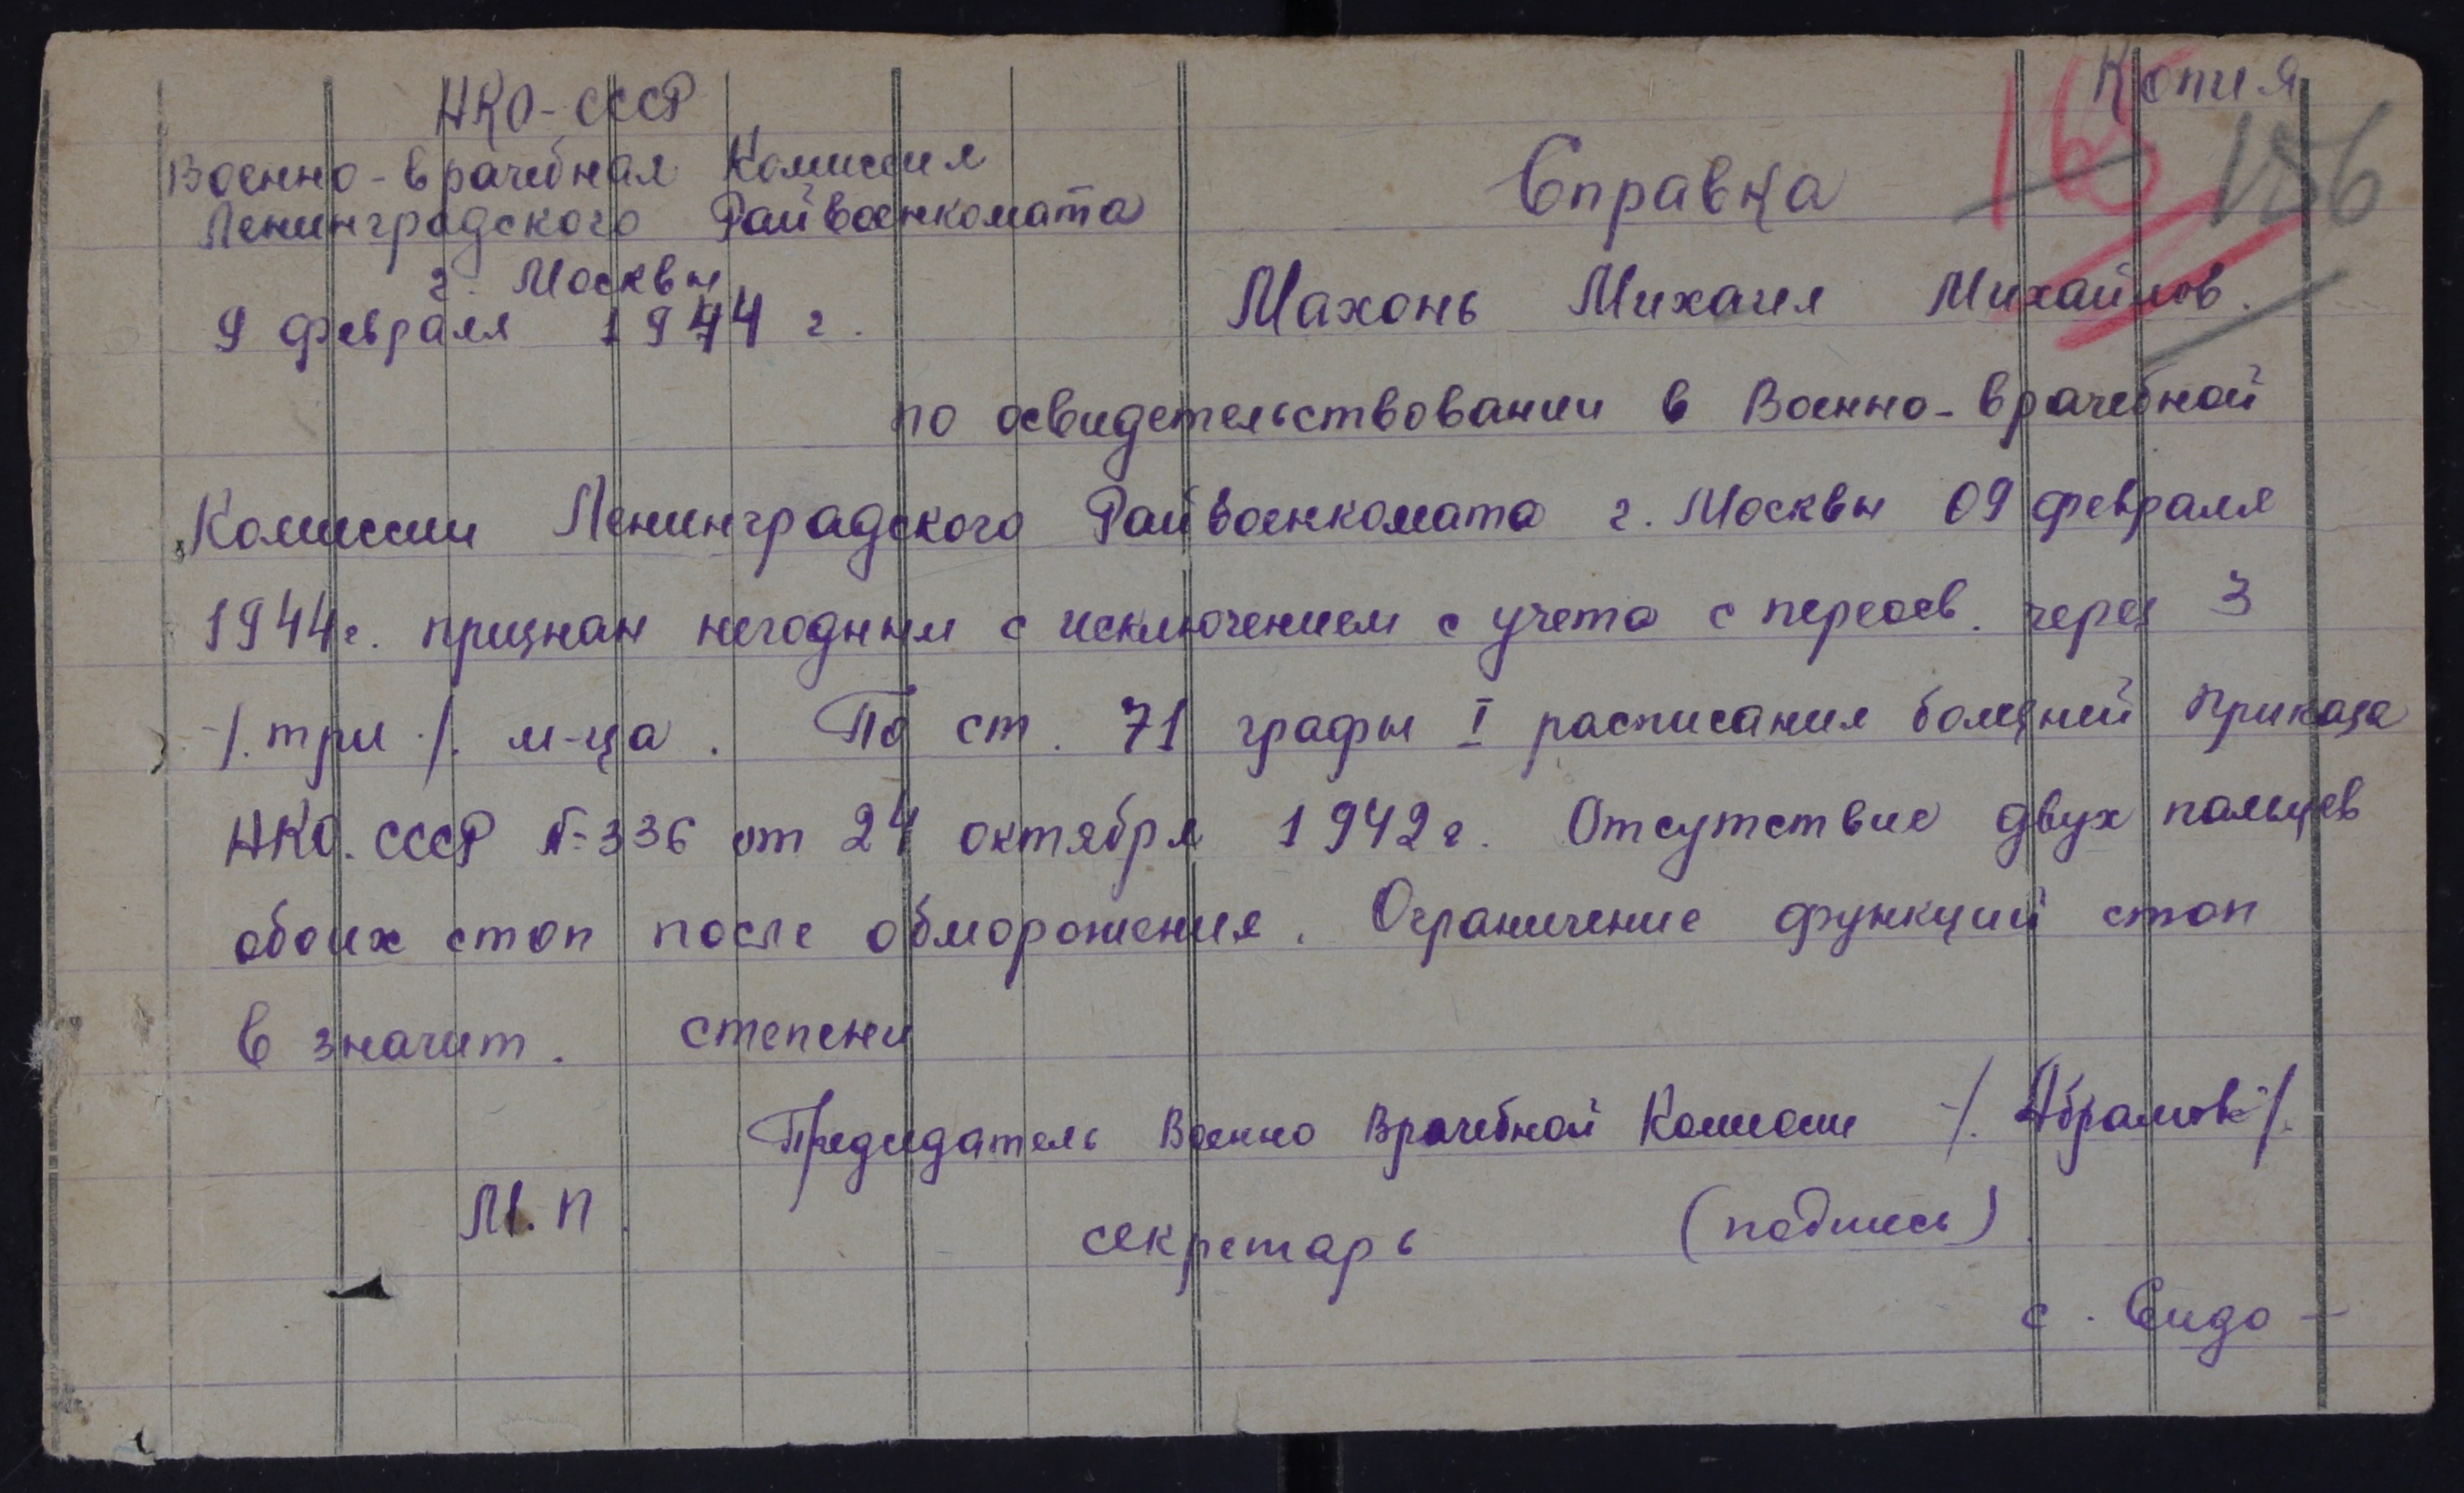 Копия
165 156
НКО-СССР
Военно-врачебная Комиссия
Ленинградского Райвоенкомата
г. Москвы
9 февраля 1944 г.
Справка
Махонь Михаил Михайлов.
по освидетельствовании в Военно-врачебной
Комиссии Ленинградского Райвоенкомата г. Москвы 09 февраля
1944г. признан негодным с исключением с учета с переосв. через 3
-/. три ./. м-ца. По ст. 71 графы I расписания болезней Приказа
НКО. СССР №336 от 24 октября 1942г. Отсутствие двух пальцев
обоих стоп после обморожения. Ограничение функций стоп
в значит. степени
Председатель Военно Врачебной Комиссии -/. Абрамов-/.
М.П. секретарь (подпись)